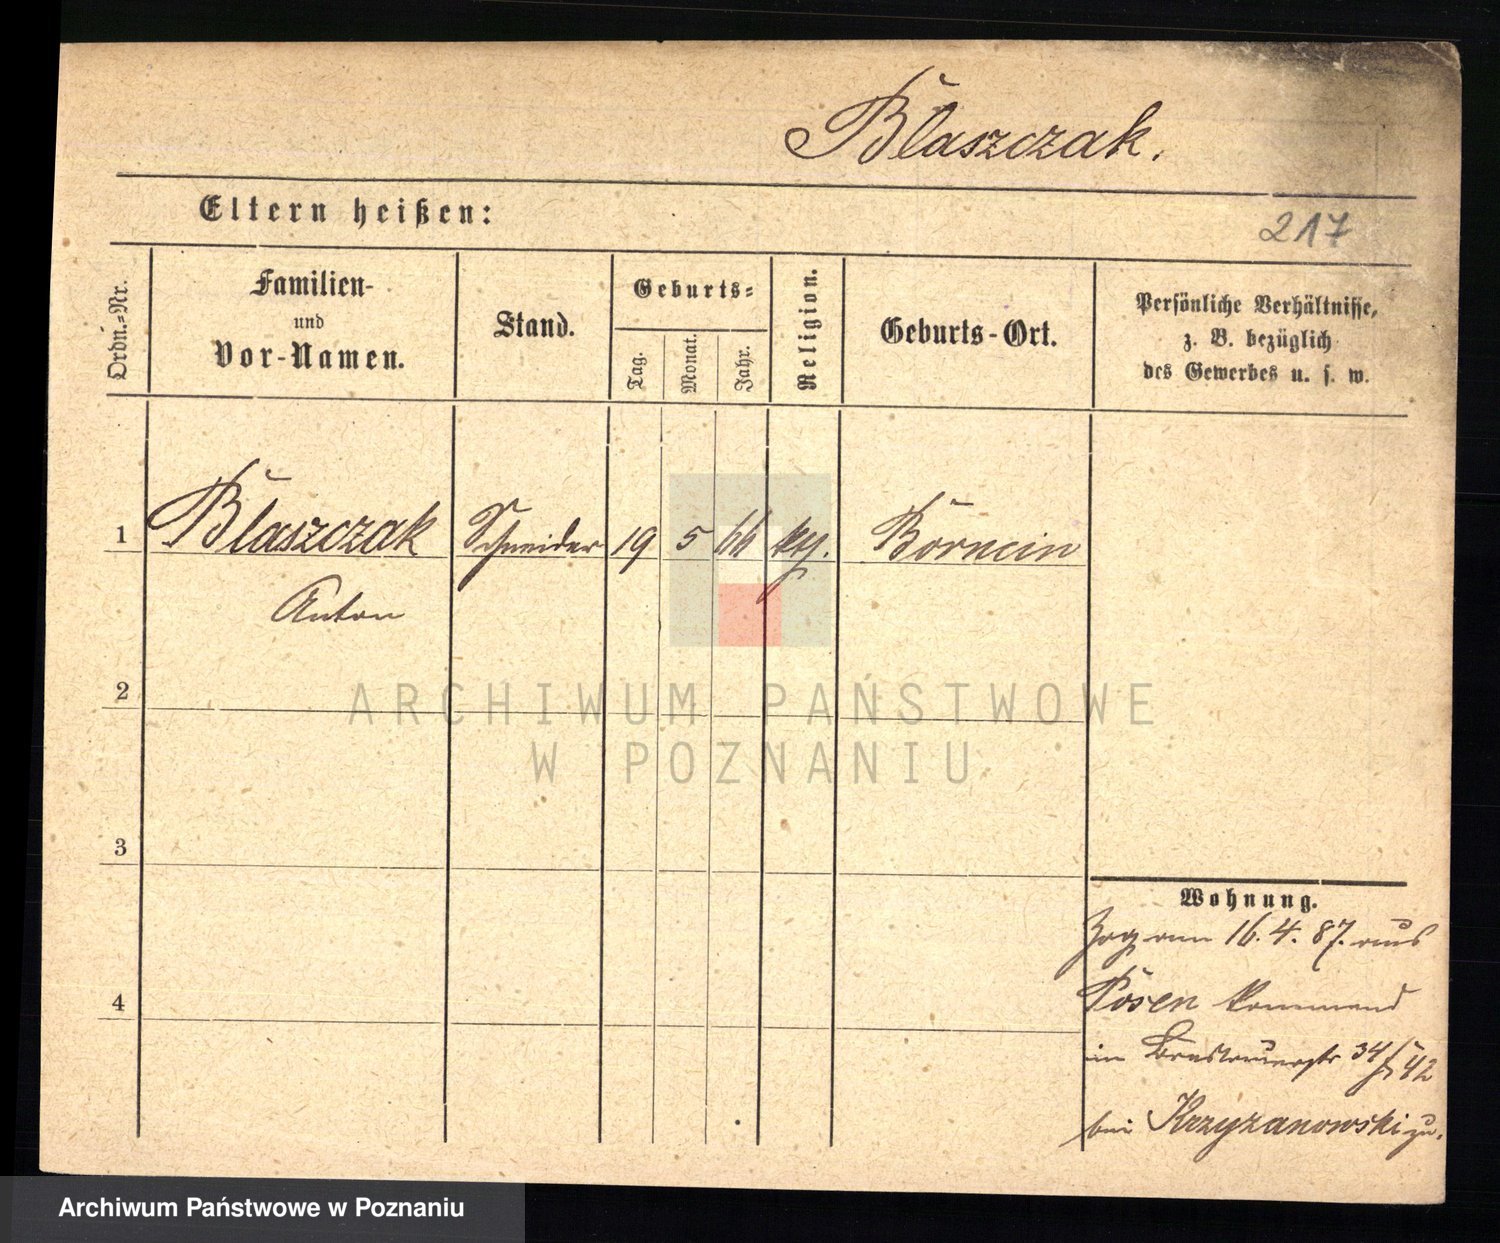 Blaszczak.
Eltern heißen:
217
Ordn.-Nr.
Familien-
und
Vor-Namen.
Stand.
Geburts-
Tag.
Monat.
Jahr.
Religion.
Geburts-Ort.
Persönliche Verhältnisse,
z. B. bezüglich
des Gewerbes u. s. w.
1
Blaszczak
Schneider
19
5
66
kth.
Anton
2
ARCHIWUM PAŃSTWOWE
W POZNANIU
3
Wohnung.
Zog am 16. 4. 87. aus
Posen kommend
4
im
bei Krzyzanowski zu.
Archiwum Państwowe w Poznaniu